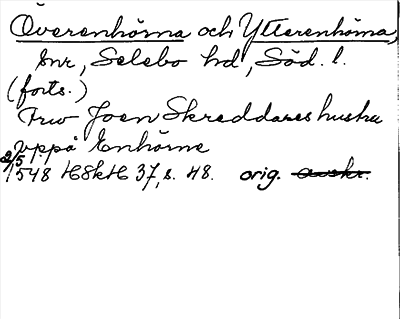 Överenhörna och Ytterenhörna,
snr, Selebo hd, Söd. l.
(forts.)
Frw Joen Skreddares hustru
vppå Enhörne
2/5 1548 HSkH 37, s. 48. orig. avskr.